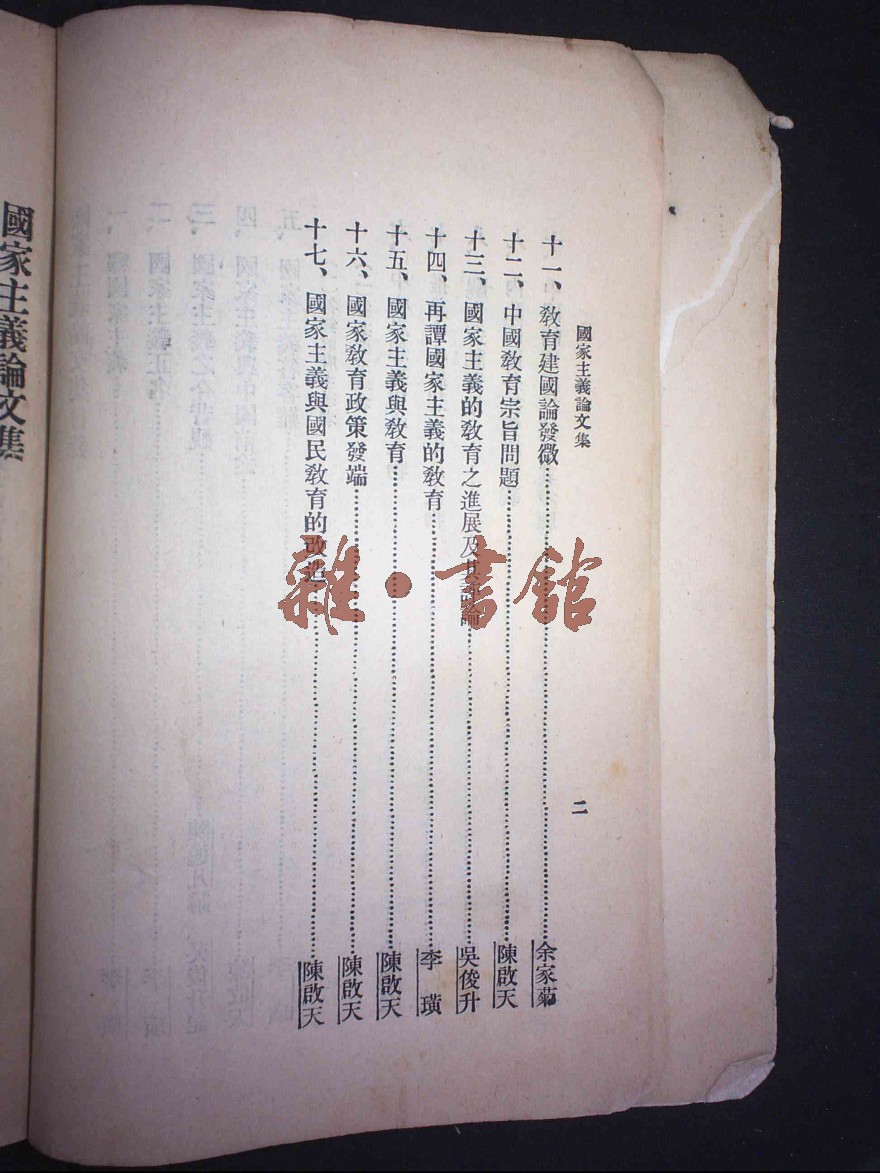 國家主義論文集
二
十一、教育建國論發微……余家菊
十二、中國教育宗旨問題……陳啟天
十三、國家主義的教育之進展及其評論……吳俊升
十四、再譚國家主義的教育……李璜
十五、國家主義與教育……陳啟天
十六、國家教育政策發端……陳啟天
十七、國家主義與國民教育的改造……陳啟天
國家主義論文集
雜·書館